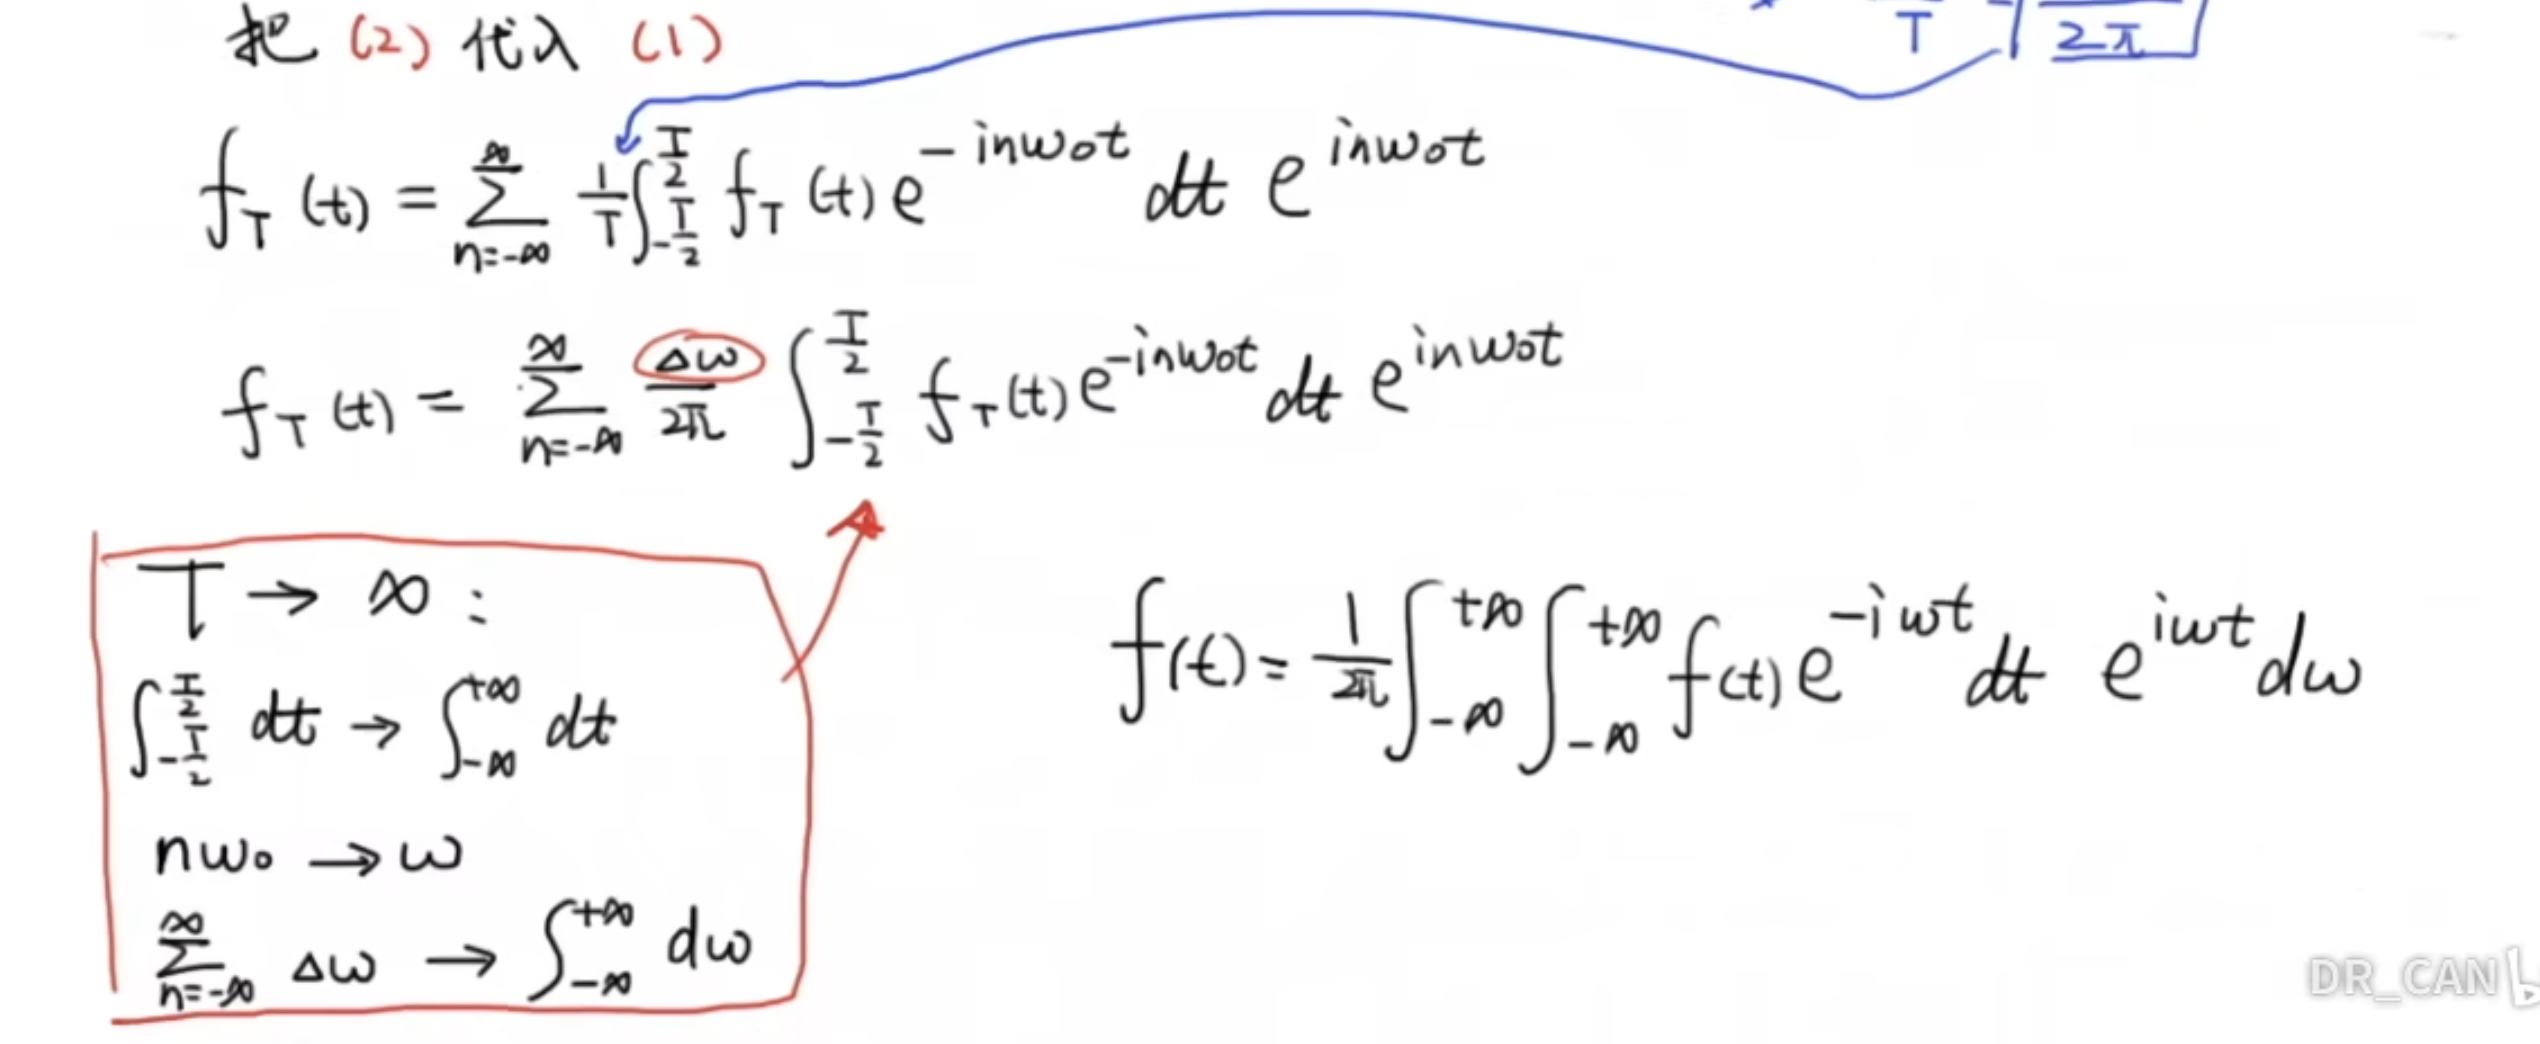 T 2π
把 (2) 代入 (1)
f_T (t) = ∑_{n=-∞}^{∞} 1/T ∫_{-T/2}^{T/2} f_T (t) e^{-inω₀t} dt e^{inω₀t}
f_T (t) = ∑_{n=-∞}^{∞} Δω/2π ∫_{-T/2}^{T/2} f_T (t) e^{-inω₀t} dt e^{inω₀t}
T → ∞ :
∫_{-T/2}^{T/2} dt → ∫_{-∞}^{+∞} dt
nω₀ → ω
∑_{n=-∞}^{∞} Δω → ∫_{-∞}^{+∞} dω
f(t) = 1/2π ∫_{-∞}^{+∞} ∫_{-∞}^{+∞} f(t) e^{-iωt} dt e^{iωt} dω
DR_CAN